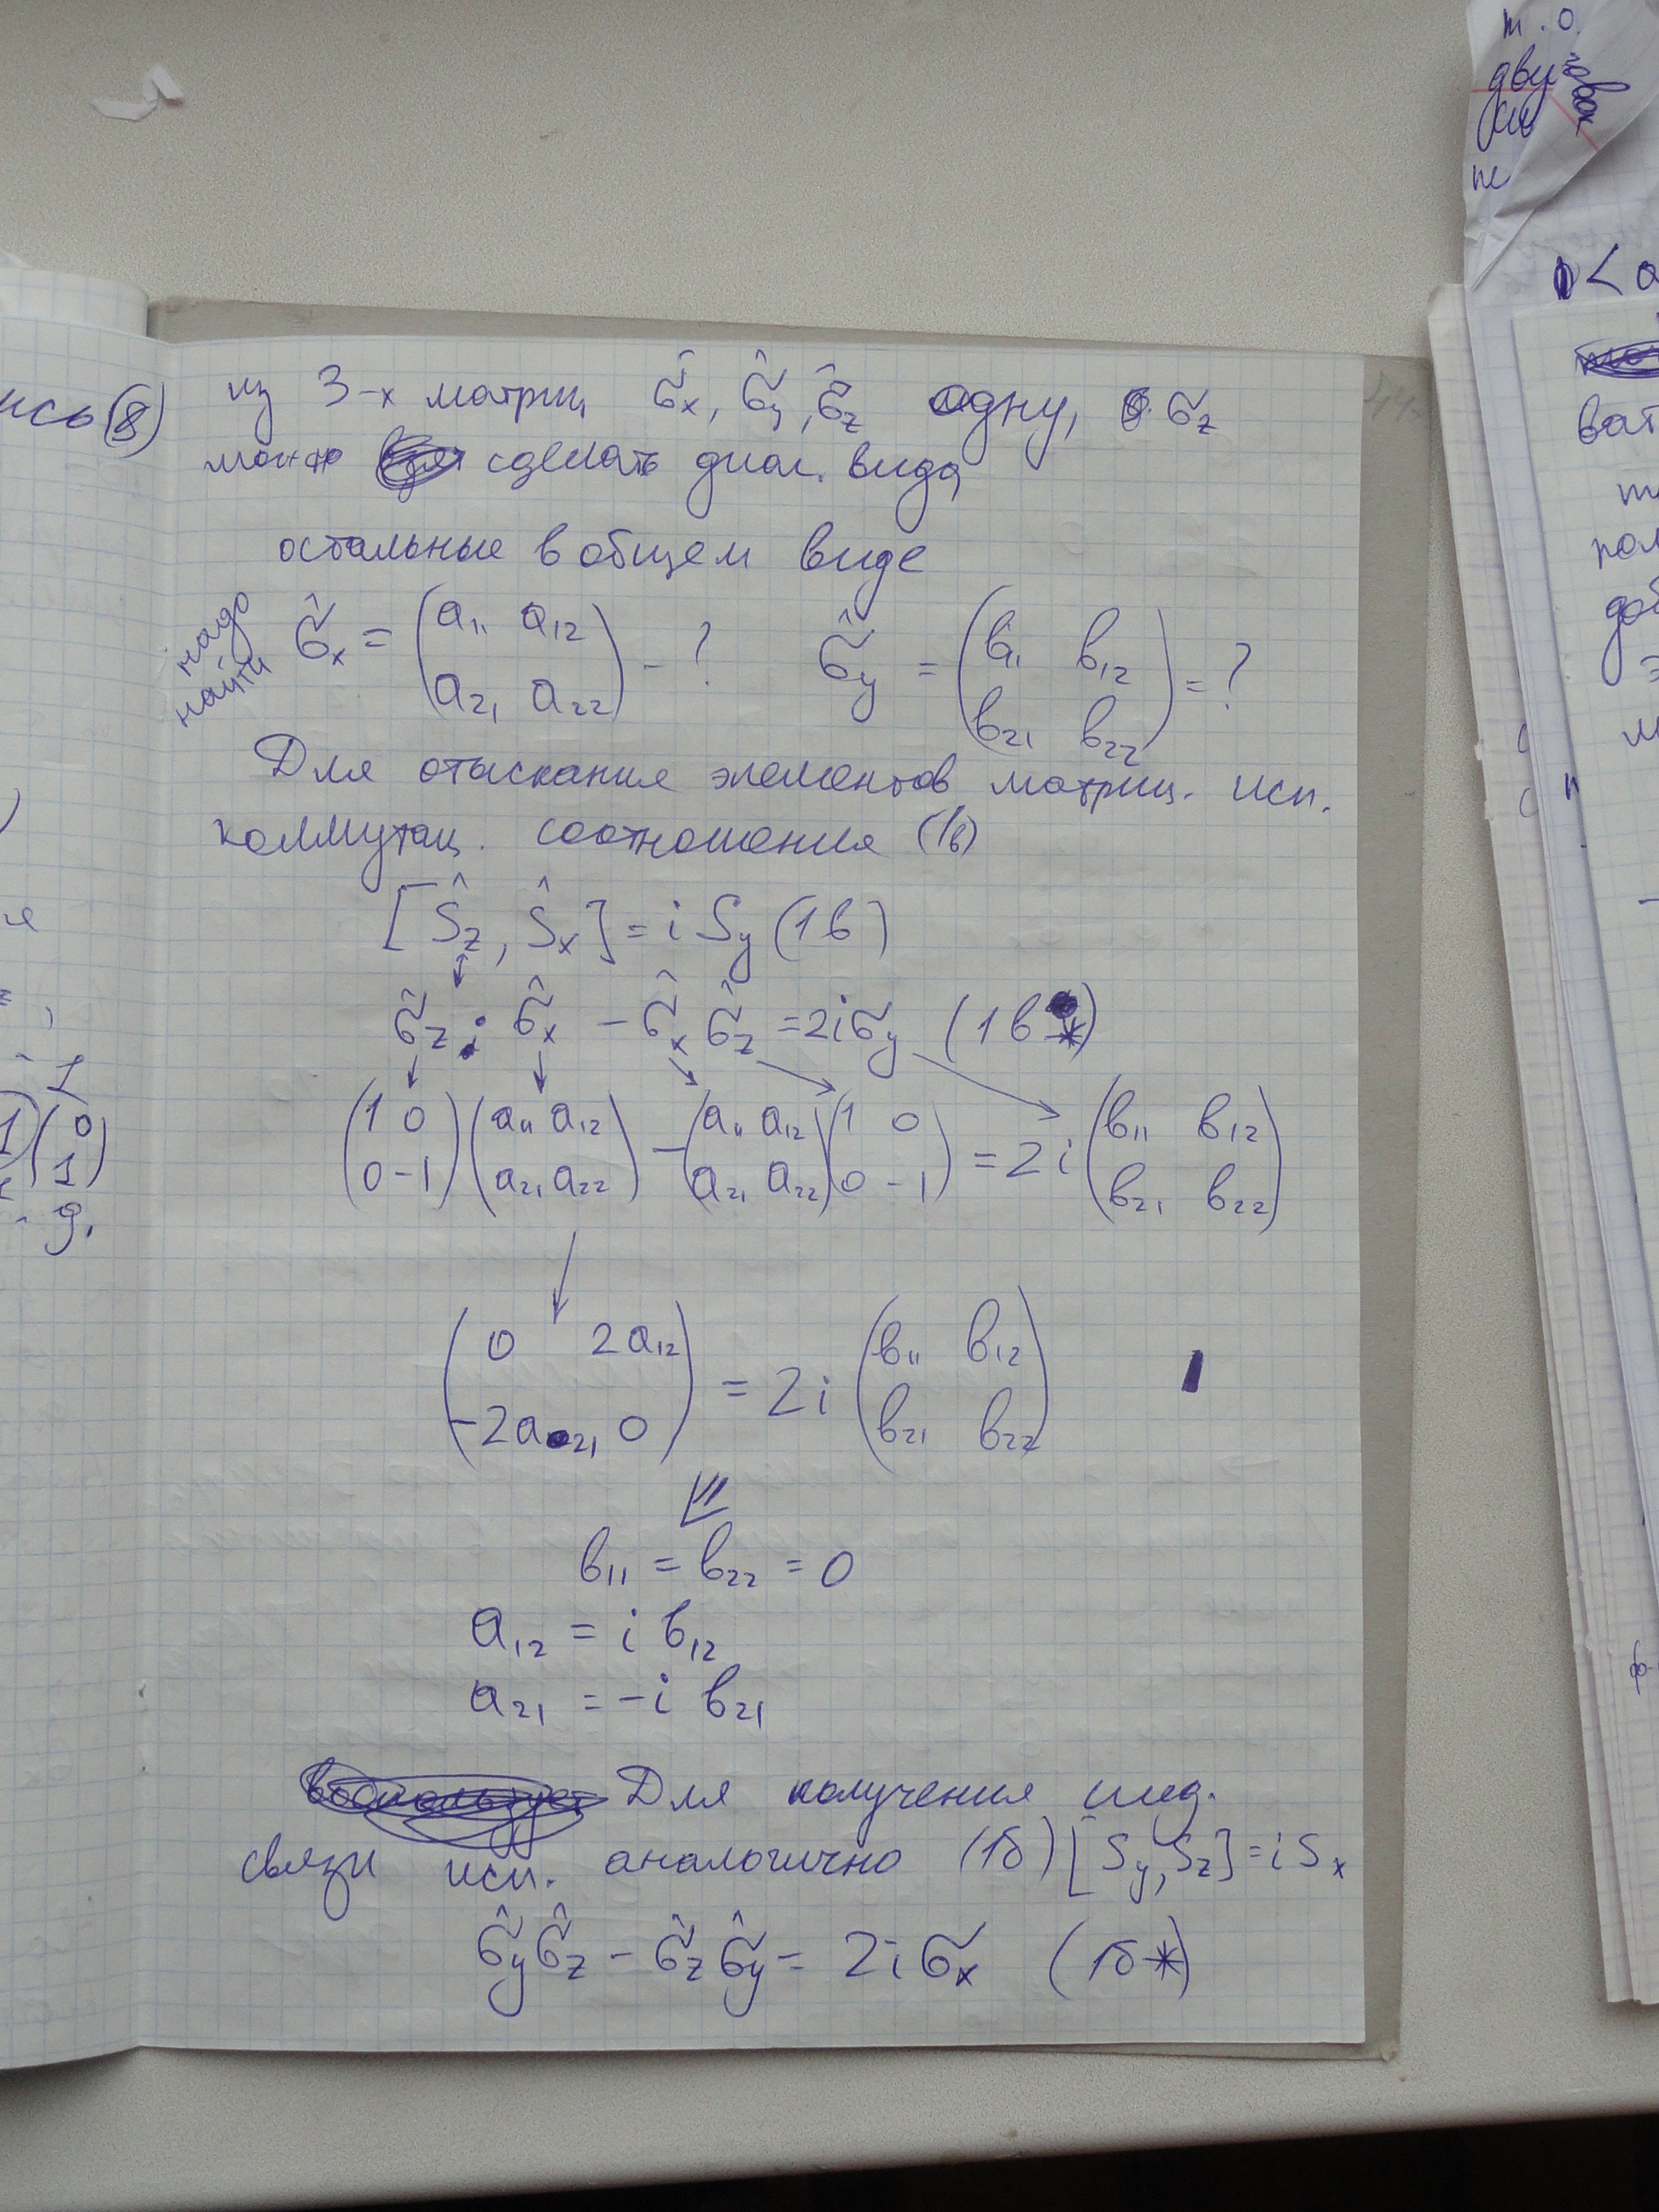 из 3-х матриц σ̂x, σ̂y, σ̂z одну, σz
можно сделать диаг. вида,
остальные в общем виде
надо найти σ̂x = (a11 a12
a21 a22) - ? σ̂y = (b11 b12
b21 b22) = ?
Для отыскания элементов матриц. исп.
коммутац. соотношения (1в)
[Ŝz, Ŝx] = i Sy (1в)
σ̂z · σ̂x - σ̂x σ̂z = 2iσy (1в*)
(1 0 (a11 a12 - (a11 a12 (1 0 = 2i (b11 b12
0 -1) a21 a22) a21 a22) 0 -1) b21 b22)
(0 2a12 = 2i (b11 b12
-2a21 0) b21 b22)
b11 = b22 = 0
a12 = i b12
a21 = -i b21
Для получения след.
связи исп. аналогично (1б) [Sy, Sz] = i Sx
σ̂yσ̂z - σ̂zσ̂y = 2i σx (1б*)
(8)
т. о.
дву
ват